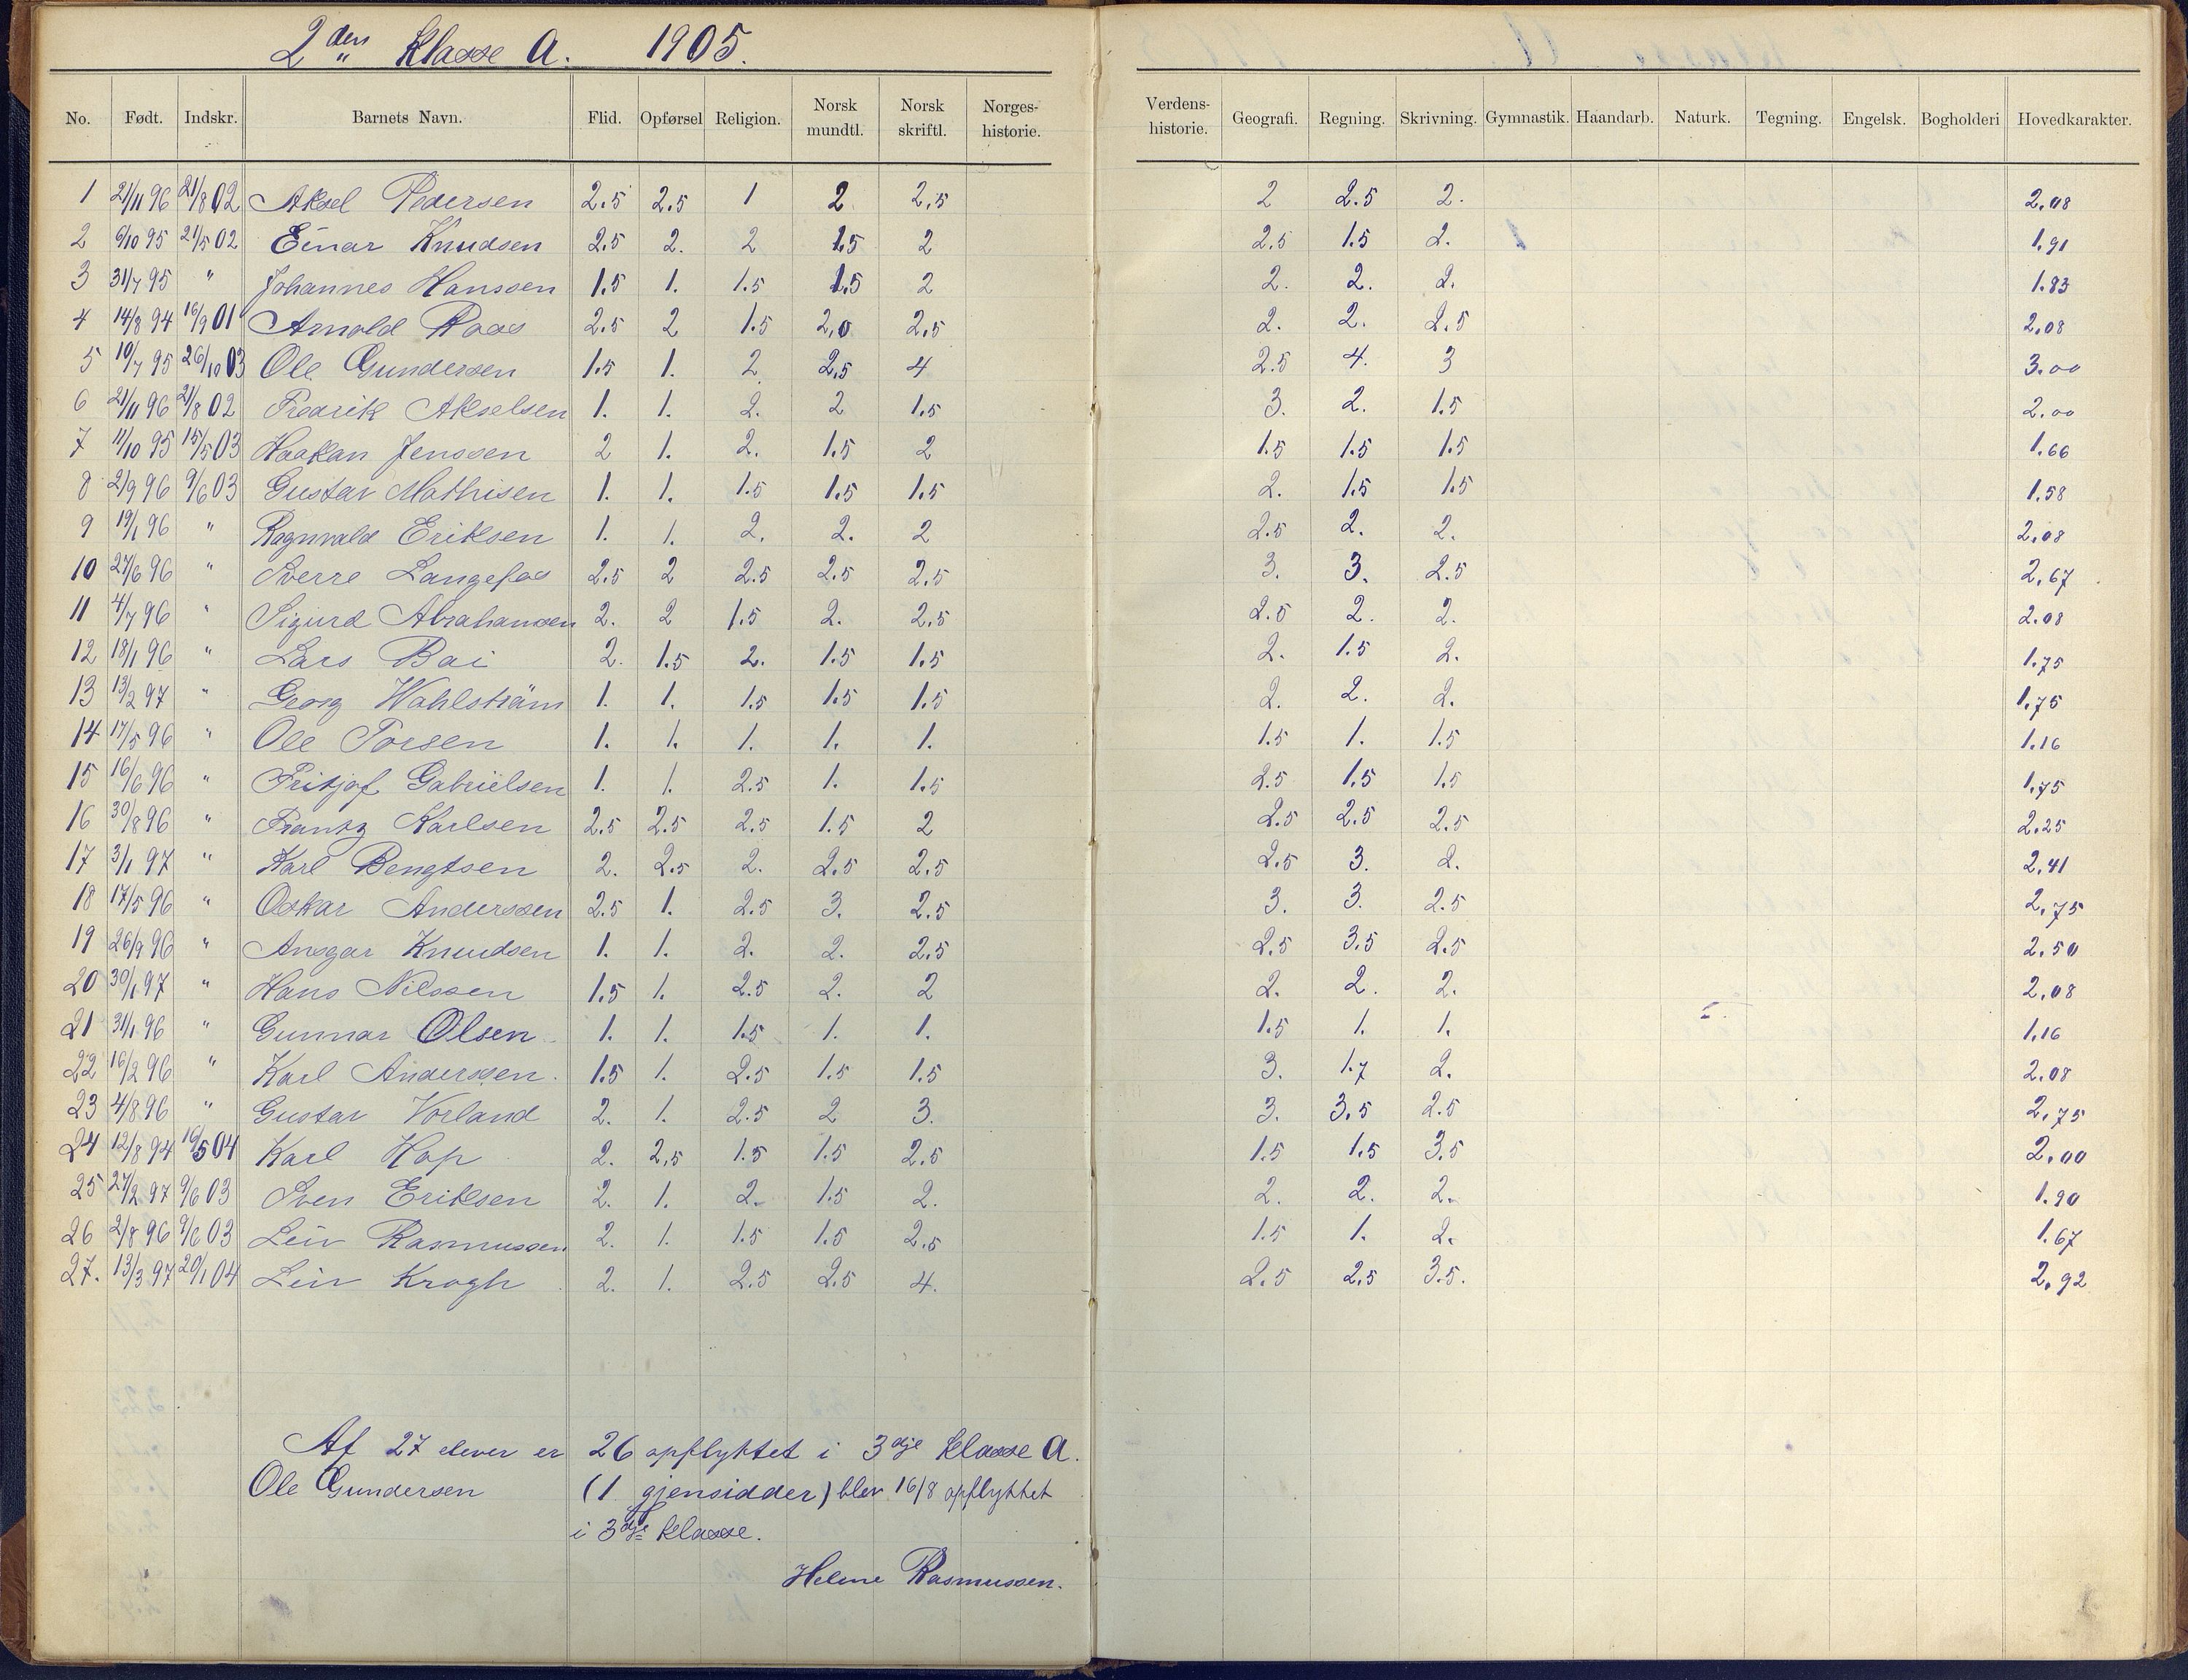 2den Klasse A. 1905.
No. Født. Indskr. Barnets Navn. Flid. Opførsel Religion. Norsk mundtl. Norsk skriftl. Norges-historie. Verdens-historie. Geografi. Regning. Skrivning. Gymnastik. Haandarb. Naturk. Tegning. Engelsk. Bogholderi Hovedkarakter.
1 21/11 96 21/8 02 Aksel Pedersen 2.5 2.5 1 2 2,5 2 2.5 2. 2,08
2 6/10 95 21/5 02 Einar Knudsen 2.5 2. 2 1.5 2 2.5 1.5 2. 1,91
3 31/7 95 " Johannes Hanssen 1.5 1. 1.5 1.5 2 2. 2. 2. 1.83
4 14/8 94 16/9 01 Arnold Roas 2.5 2 1.5 2,0 2,5 2. 2. 2.5 2,08
5 10/7 95 26/10 03 Ole Gundersen 1.5 1. 2 2,5 4 2.5 4. 3 3.00
6 21/11 96 21/8 02 Fredrik Akselsen 1. 1. 2. 2 1.5 3. 2. 1.5 2.00
7 11/10 95 15/5 03 Haakan Jenssen 2 1. 2. 1.5 2 1.5 1.5 1.5 1.66
8 2/9 96 9/6 03 Gustav Mathisen 1. 1. 1.5 1.5 1.5 2. 1.5 1.5 1.58
9 19/1 96 " Ragnvald Eriksen 1. 1. 2. 2. 2 2.5 2. 2. 2,08
10 27/6 96 " Sverre Langefos 2.5 2 2.5 2.5 2.5 3. 3. 2.5 2,67
11 4/7 96 " Sigurd Abrahamsen 2. 2 1.5 2. 2.5 2.5 2. 2. 2.08
12 18/1 96 " Lars Boi 2. 1.5 2. 1.5 1.5 2. 1.5 2. 1.75
13 13/2 97 " Georg Wahlström 1. 1. 1.5 1.5 1.5 2. 2. 2. 1.75
14 17/5 96 " Ole Torsen 1. 1. 1. 1. 1. 1.5 1. 1.5 1.16
15 16/6 96 " Fritjof Gabrielsen 1. 1. 2.5 1. 1.5 2.5 1.5 1.5 1,75
16 30/8 96 " Frantz Karlsen 2.5 2.5 2.5 1.5 2 2.5 2.5 2.5 2.25
17 3/1 97 " Karl Bengtsen 2. 2.5 2. 2.5 2,5 2.5 3. 2. 2,41
18 17/5 96 " Oskar Anderssen 2.5 1. 2.5 3. 2.5 3. 3. 2.5 2,75
19 26/9 96 " Ansgar Knudsen 1. 1. 2. 2. 2.5 2.5 3.5 2.5 2.50
20 30/1 97 " Hans Nilssen 1.5 1. 2.5 2. 2 2. 2. 2. 2,08
21 31/1 96 " Gunnar Olsen 1. 1. 1.5 1. 1. 1.5 1. 1. 1,16
22 16/2 96 " Karl Anderssen. 1.5 1. 2.5 1.5 1.5 3. 1.7 2. 2.08
23 4/8 96 " Gustav Vorland 2. 1. 2.5 2 3. 3. 3.5 2.5 2,75
24 12/8 94 16/5 04 Karl Hop 2. 2,5 1.5 1.5 2.5 1.5 1.5 3.5 2.00
25 27/2 97 9/6 03 Sven Eriksen 2. 1. 2. 1.5 2. 2. 2. 2. 1.90
26 2/8 96 9/6 03 Leiv Rasmussen 2. 1. 1.5 1.5 2.5 1.5 1. 2. 1.67
27. 13/3 97 20/1 04 Leiv Krogh 2. 1. 2.5 2.5 4. 2.5 2.5 3.5. 2,92
Af 27 elever er 26 opflyttet i 3dje klasse A.
Ole Gundersen (1 gjensidder) blev 16/8 opflyttet
i 3dje klasse.
Helene Rasmussen.